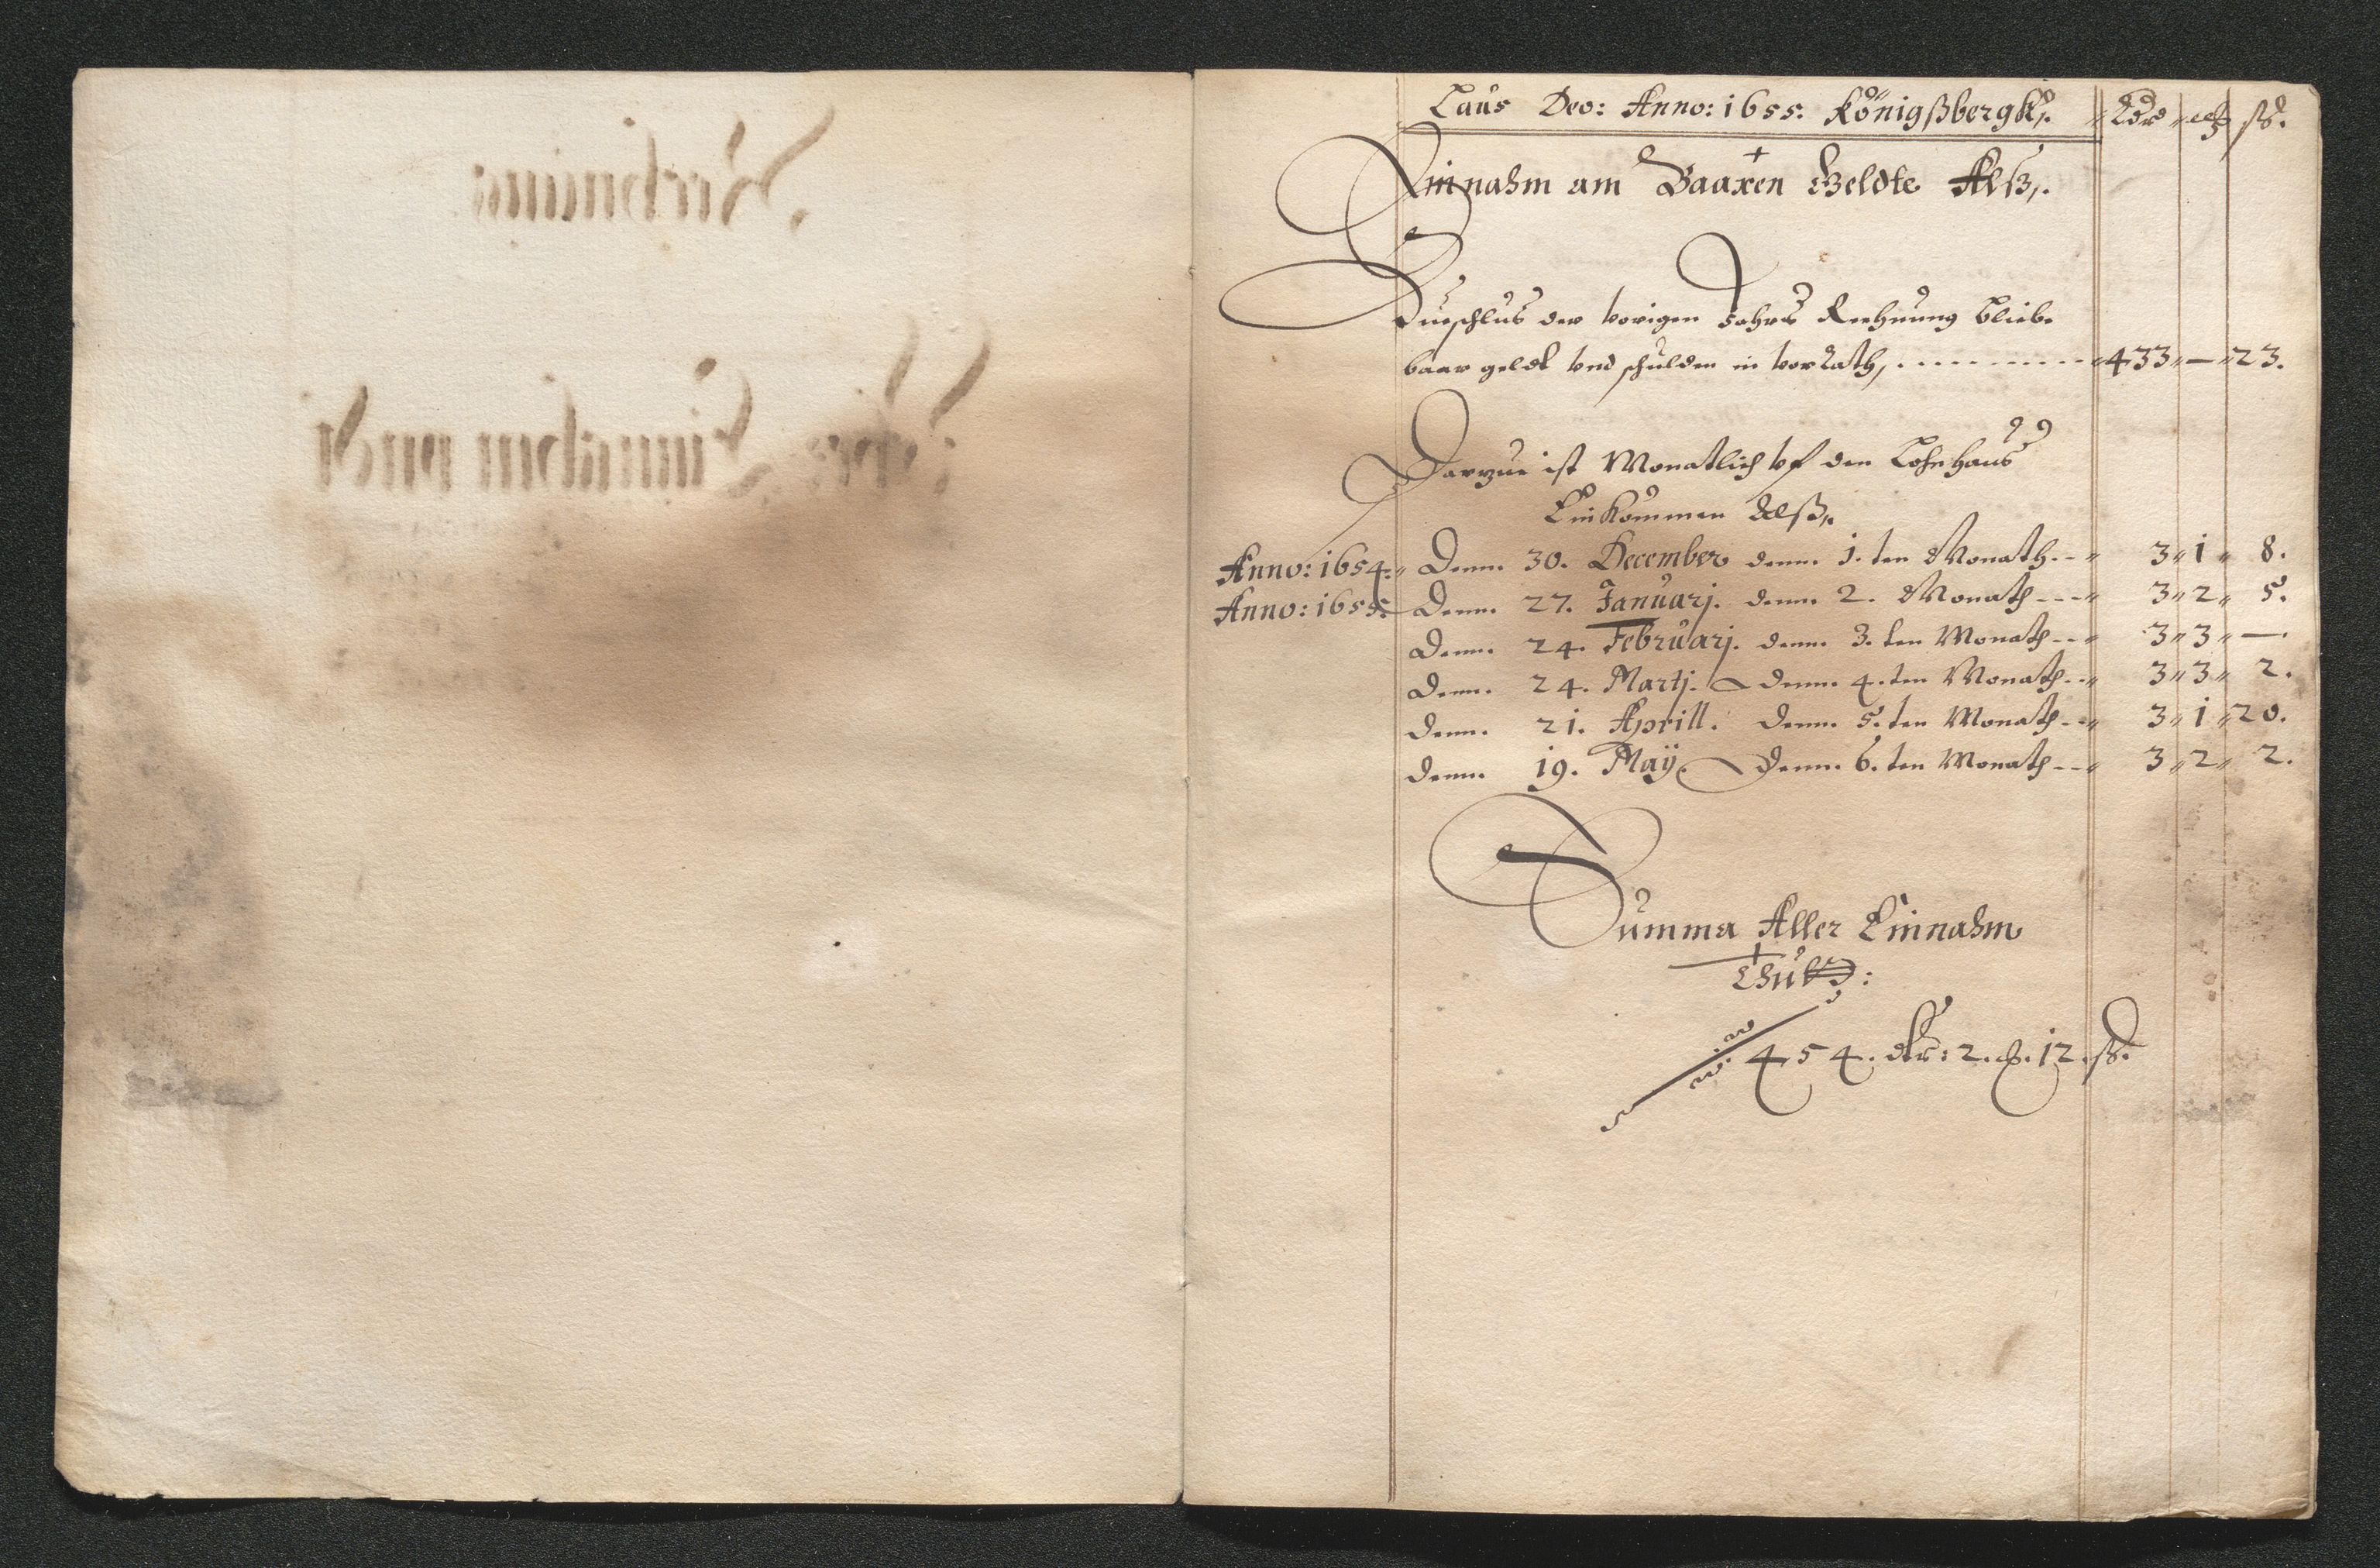 Laus Deo: Anno: 1655. Königßbergk.
Einnahm am Baaren Geldte Alß.
der vorigen Jahres Rechnung bliebe
baar geldt vnd schulden in vorrath, 433 — 23.
Darzue ist Monatlich vf den Lohnhaus
Einkommen Alß.
Anno: 1654. Denn. 30. December denn. 1. ten Monath 3 1 8.
Anno: 1655. Denn. 27. Januarj. denn. 2. Monath 3 2 5.
Denn. 24. Februarj. denn. 3. ten Monath 3 3 —.
Denn. 24. Martj. denn. 4. ten Monath 3 3 2.
Denn. 21. Aprill. denn. 5. ten Monath 3 1 20.
Denn. 19. Maÿ. denn. 6. ten Monath 3 2 2.
Summa Aller Einnahm
Thutt:
454. 2. 12. ß.